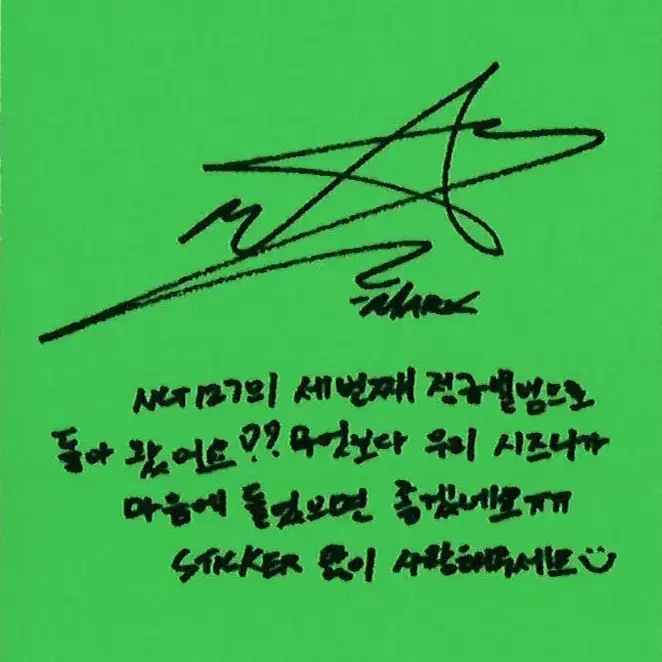 -MARK
NCT127의 세번째 정규앨범으로
돌아 왔어요?? 무엇보다 우리 시즈니가
마음에 들었으면 좋겠네요ㅠㅠ
STICKER 많이 사랑해주세요